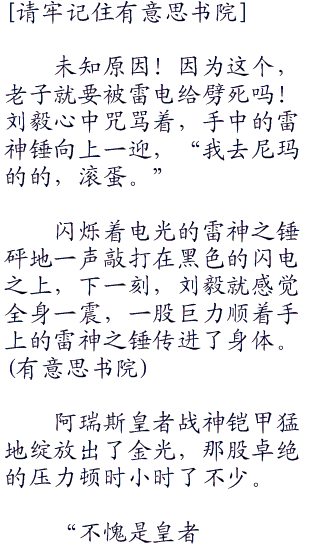 [请牢记住有意思书院]
未知原因！因为这个，
老子就要被雷电给劈死吗！
刘毅心中咒骂着，手中的雷
神锤向上一迎，“我去尼玛
的的，滚蛋。”
闪烁着电光的雷神之锤
砰地一声敲打在黑色的闪电
之上，下一刻，刘毅就感觉
全身一震，一股巨力顺着手
上的雷神之锤传进了身体。
(有意思书院)
阿瑞斯皇者战神铠甲猛
地绽放出了金光，那股卓绝
的压力顿时小时了不少。
“不愧是皇者